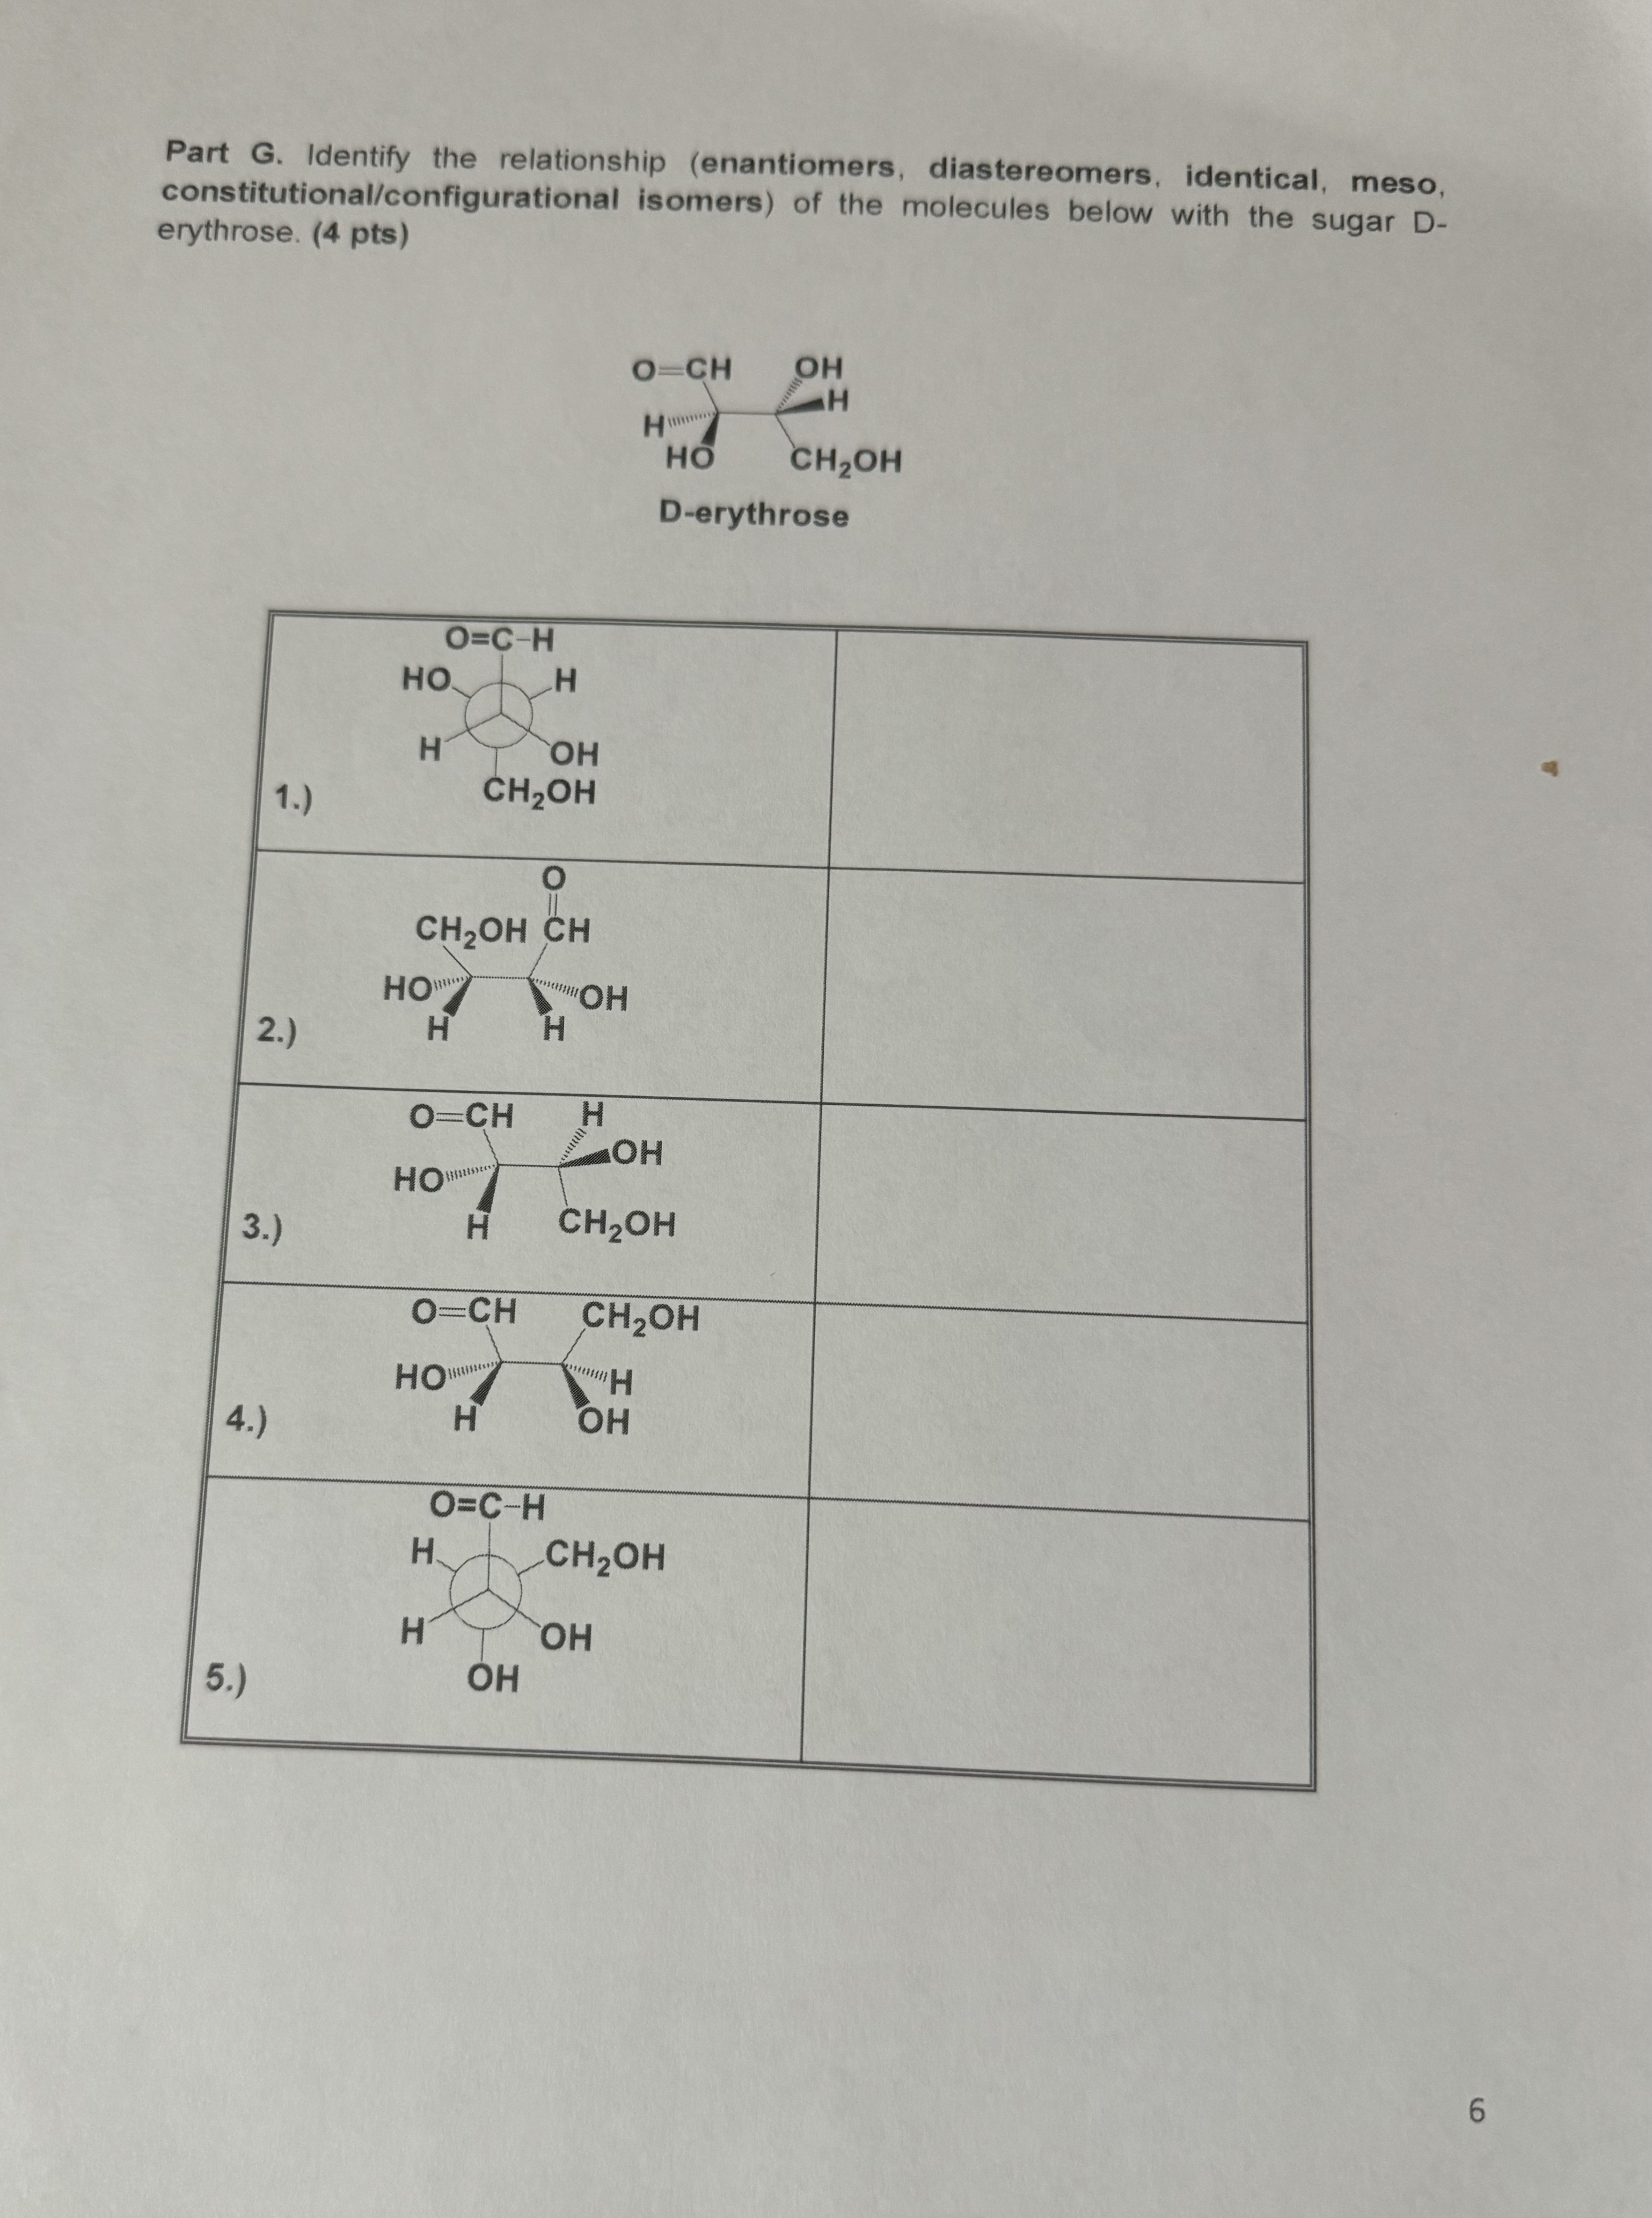 Part G. Identify the relationship (enantiomers, diastereomers, identical, meso,
constitutional/configurational isomers) of the molecules below with the sugar D-
erythrose. (4 pts)
O=CH OH
H H
HO CH₂OH
D-erythrose
O=C-H
HO H
H OH
CH₂OH
1.)
O
CH₂OH CH
HO OH
H H
2.)
O=CH H
HO OH
H CH₂OH
3.)
O=CH CH₂OH
HO H
H OH
4.)
O=C-H
H CH₂OH
H OH
OH
5.)
6